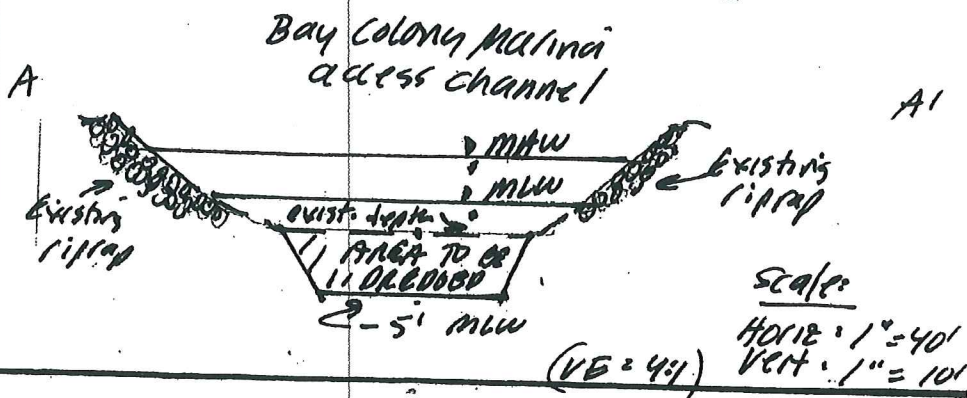 Bay Colony Marina
access channel
A
A'
MHW
MLW
Existing
riprap
Existing
riprap
exist. depth
AREA TO BE
DREDGED
-5' MLW
Scale:
Horiz: 1" = 40'
Vert: 1" = 10'
(VE = 4:1)